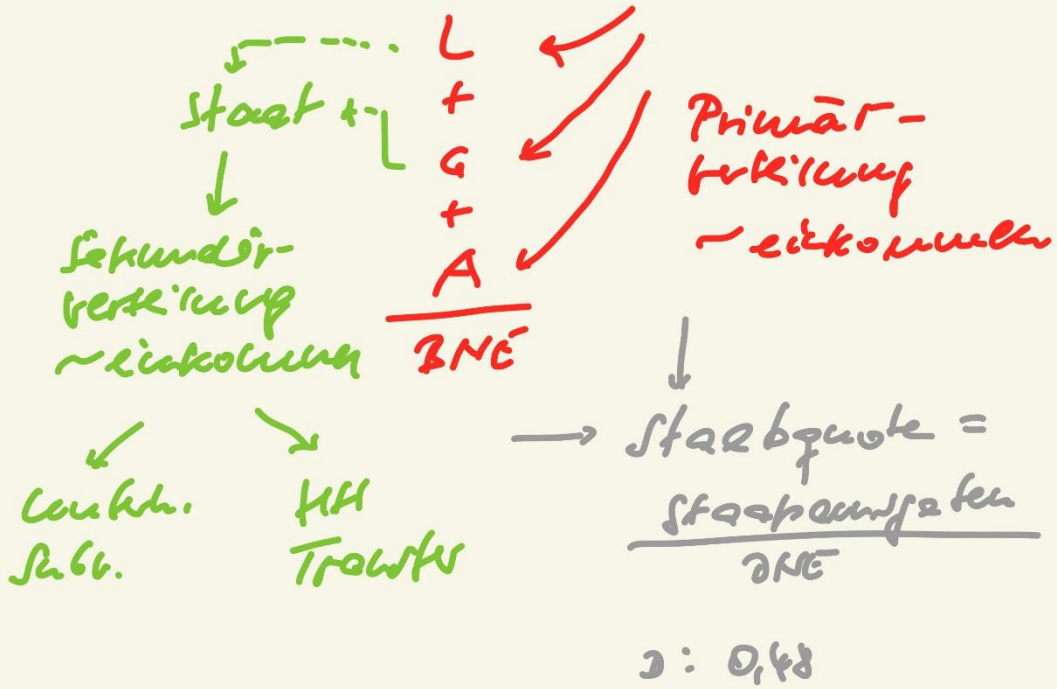 L
+
G
+
A
BNE
Primär-
verteilung
~einkommen
Staat +
Sekundär-
verteilung
~einkommen
Untern.
Subv.
HH
Transfer
Staatsquote =
Staatsausgaben
BNE
D: 0,48